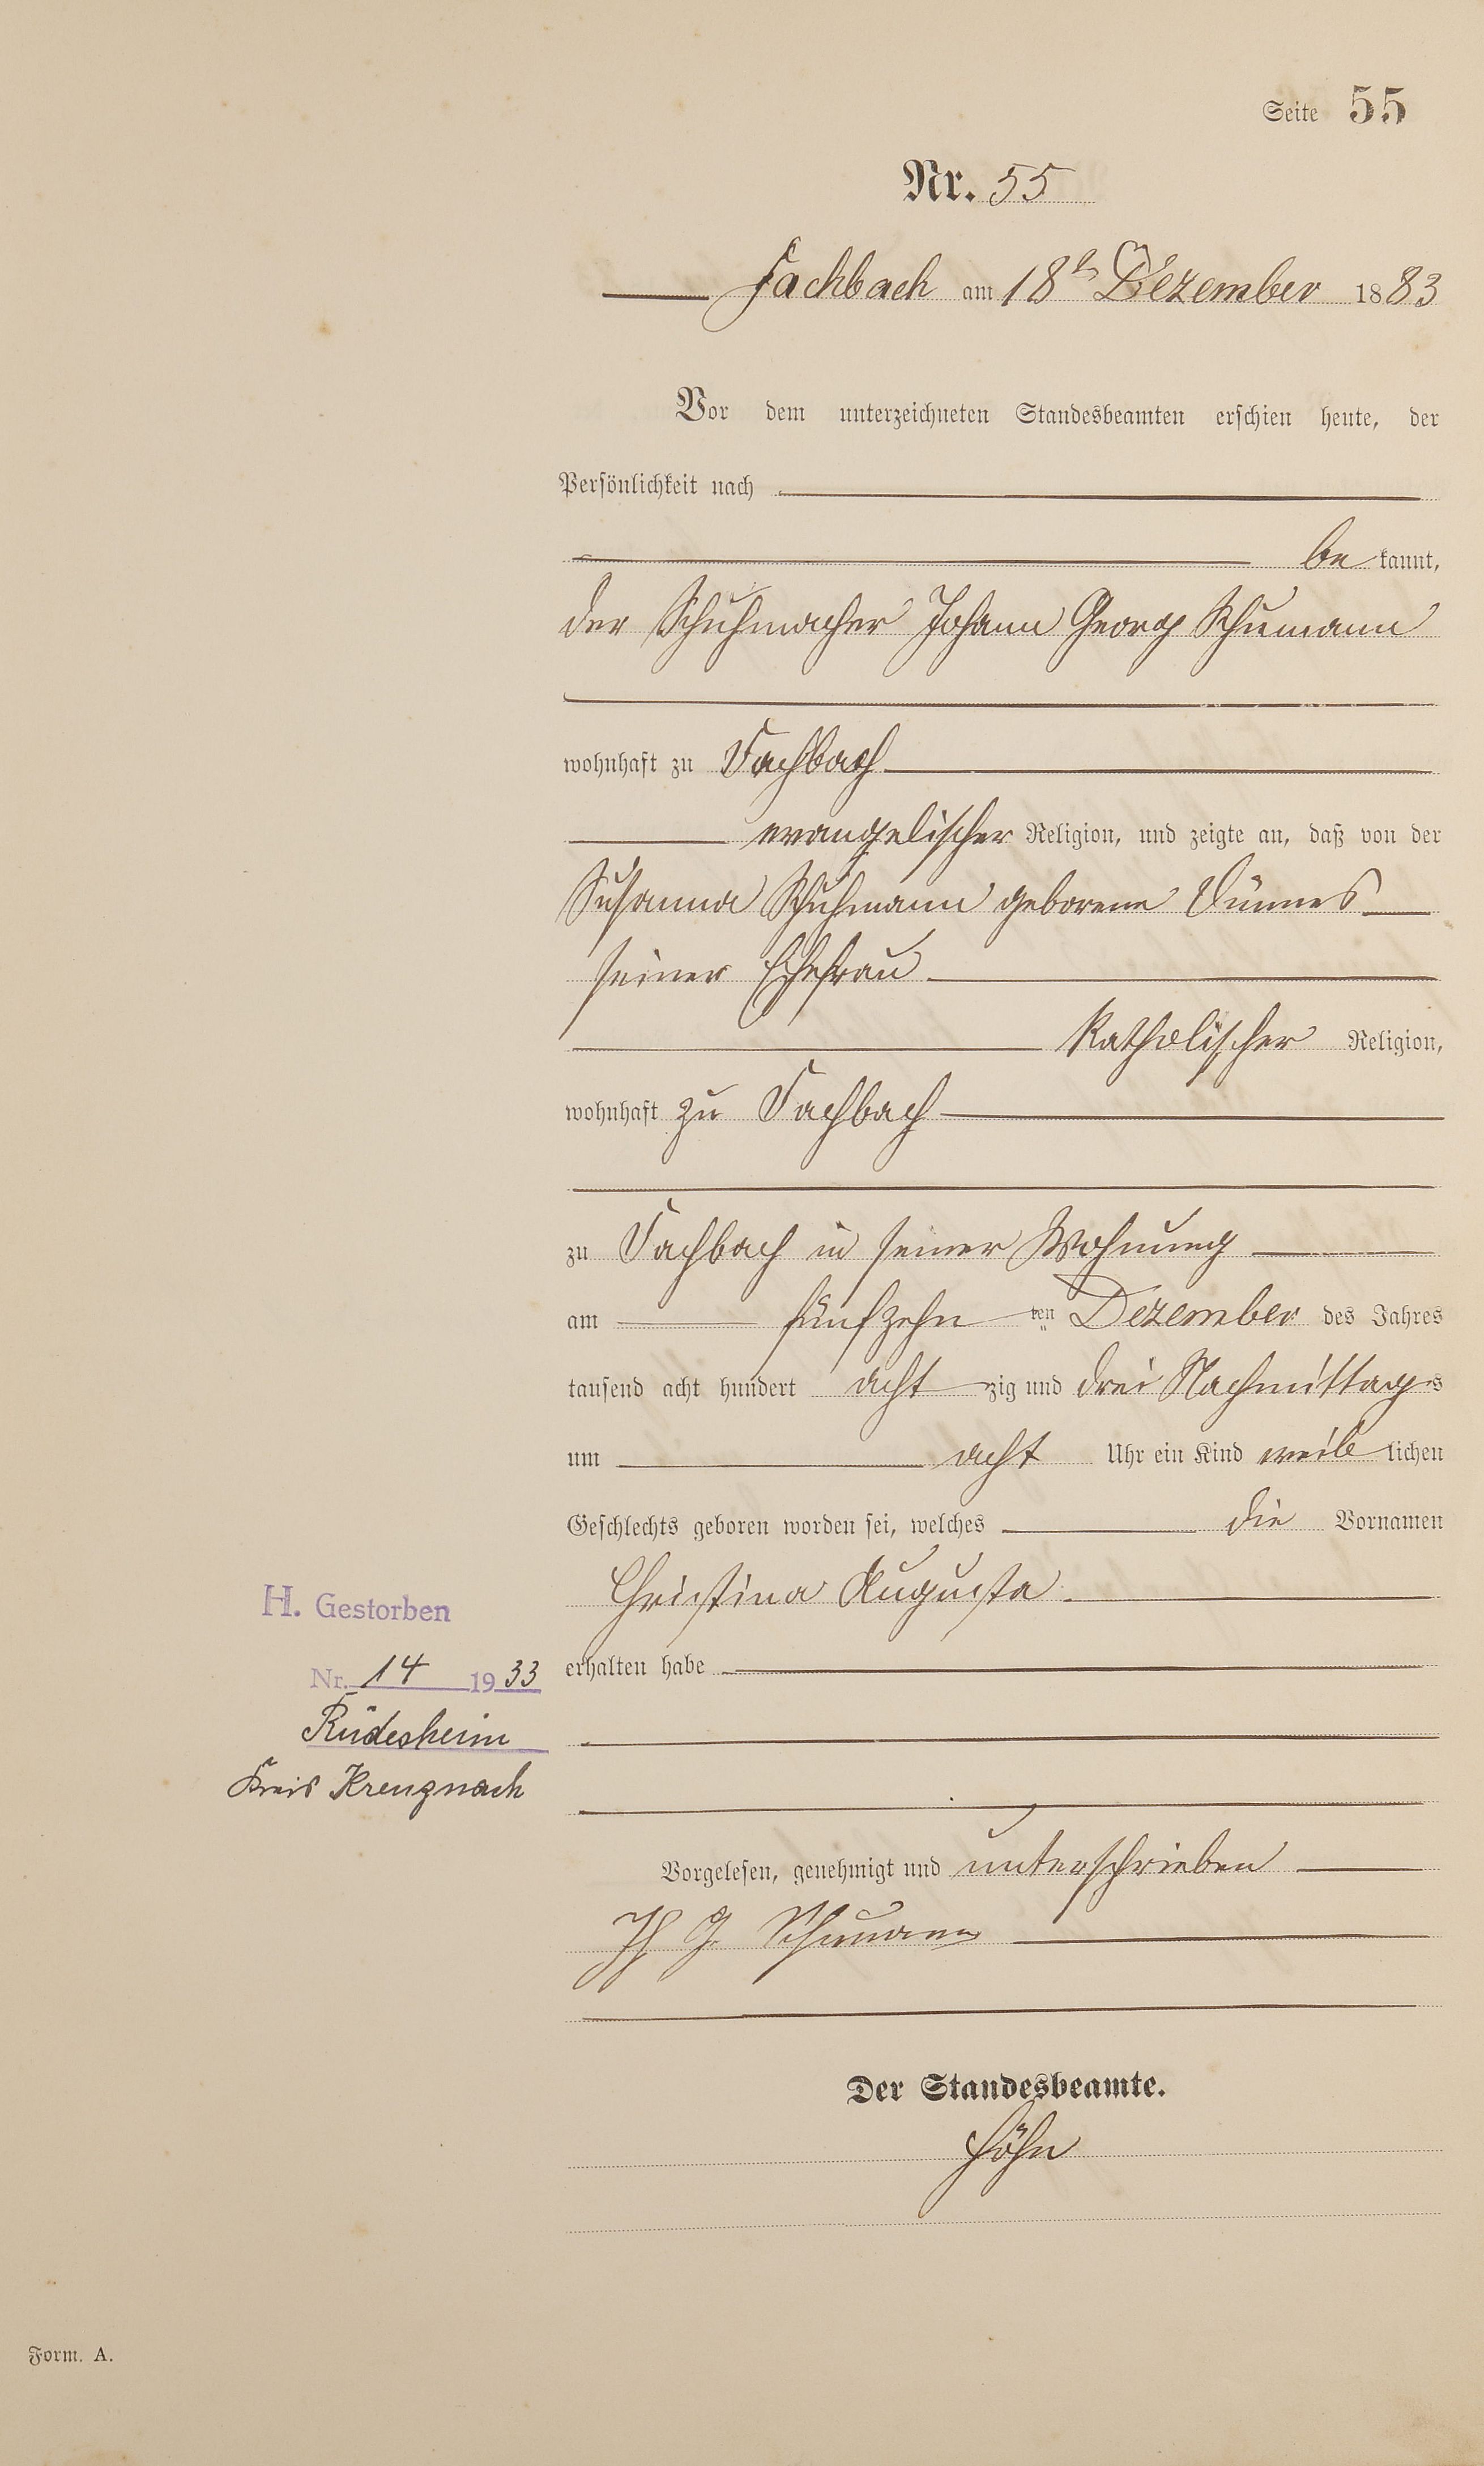 Seite 55
Nr. 55
Fachbach am 18t Dezember 1883
Vor dem unterzeichneten Standesbeamten erschien heute, der
Persönlichkeit nach
be kannt,
der Schuhmacher Johann Georg Schumann
wohnhaft zu Fachbach
evangelischer Religion, und zeigte an, daß von der
Susanna Schuhmann geborene
seiner Ehefrau
katholischer Religion,
wohnhaft zu Fachbach
zu Fachbach in seiner Wohnung
am fünfzehn ten Dezember des Jahres
tausend acht hundert acht zig und drei Nachmittags
um acht Uhr ein Kind weib lichen
Geschlechts geboren worden sei, welches die Vornamen
Christina Augusta
erhalten habe
H. Gestorben
Nr. 14 1933
Rüdesheim
Kreis Kreuznach
Vorgelesen, genehmigt und unterschrieben
Jh G Schumann
Der Standesbeamte.
Höhn
Form. A.